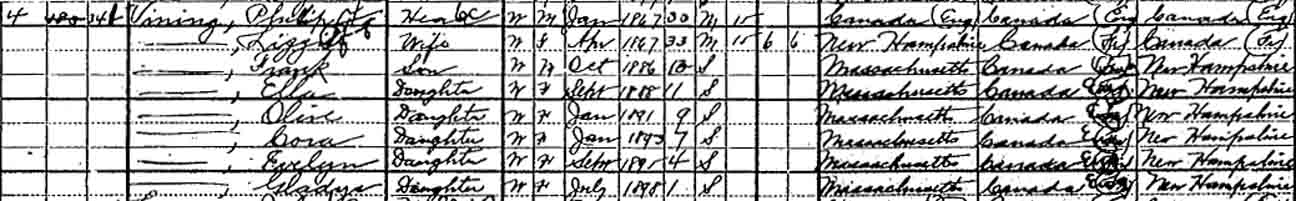 4 480 Vining, Philip Head W M Jan 1867 M 15 Canada (Eng Canada (Eng Canada (Eng)
———, Lizzie Wife W F Apr 1867 33 M 15 6 6 New Hampshire Canada (Fr) Canada (Fr)
———, Frank Son W Oct 1886 13 S Massachusetts Canada New Hampshire
———, Ella Daughter W F Sept 1888 11 S Massachusetts Canada Eng New Hampshire
———, Olive Daughter W F Jan 1891 9 S Massachusetts Canada New Hampshire
———, Cora Daughter W F Jan 1893 7 S Massachusetts Canada New Hampshire
———, Evelyn Daughter W F Sept 1895 4 S Massachusetts Canada New Hampshire
———, Gladys Daughter W F July 1898 1 S Massachusetts Canada New Hampshire